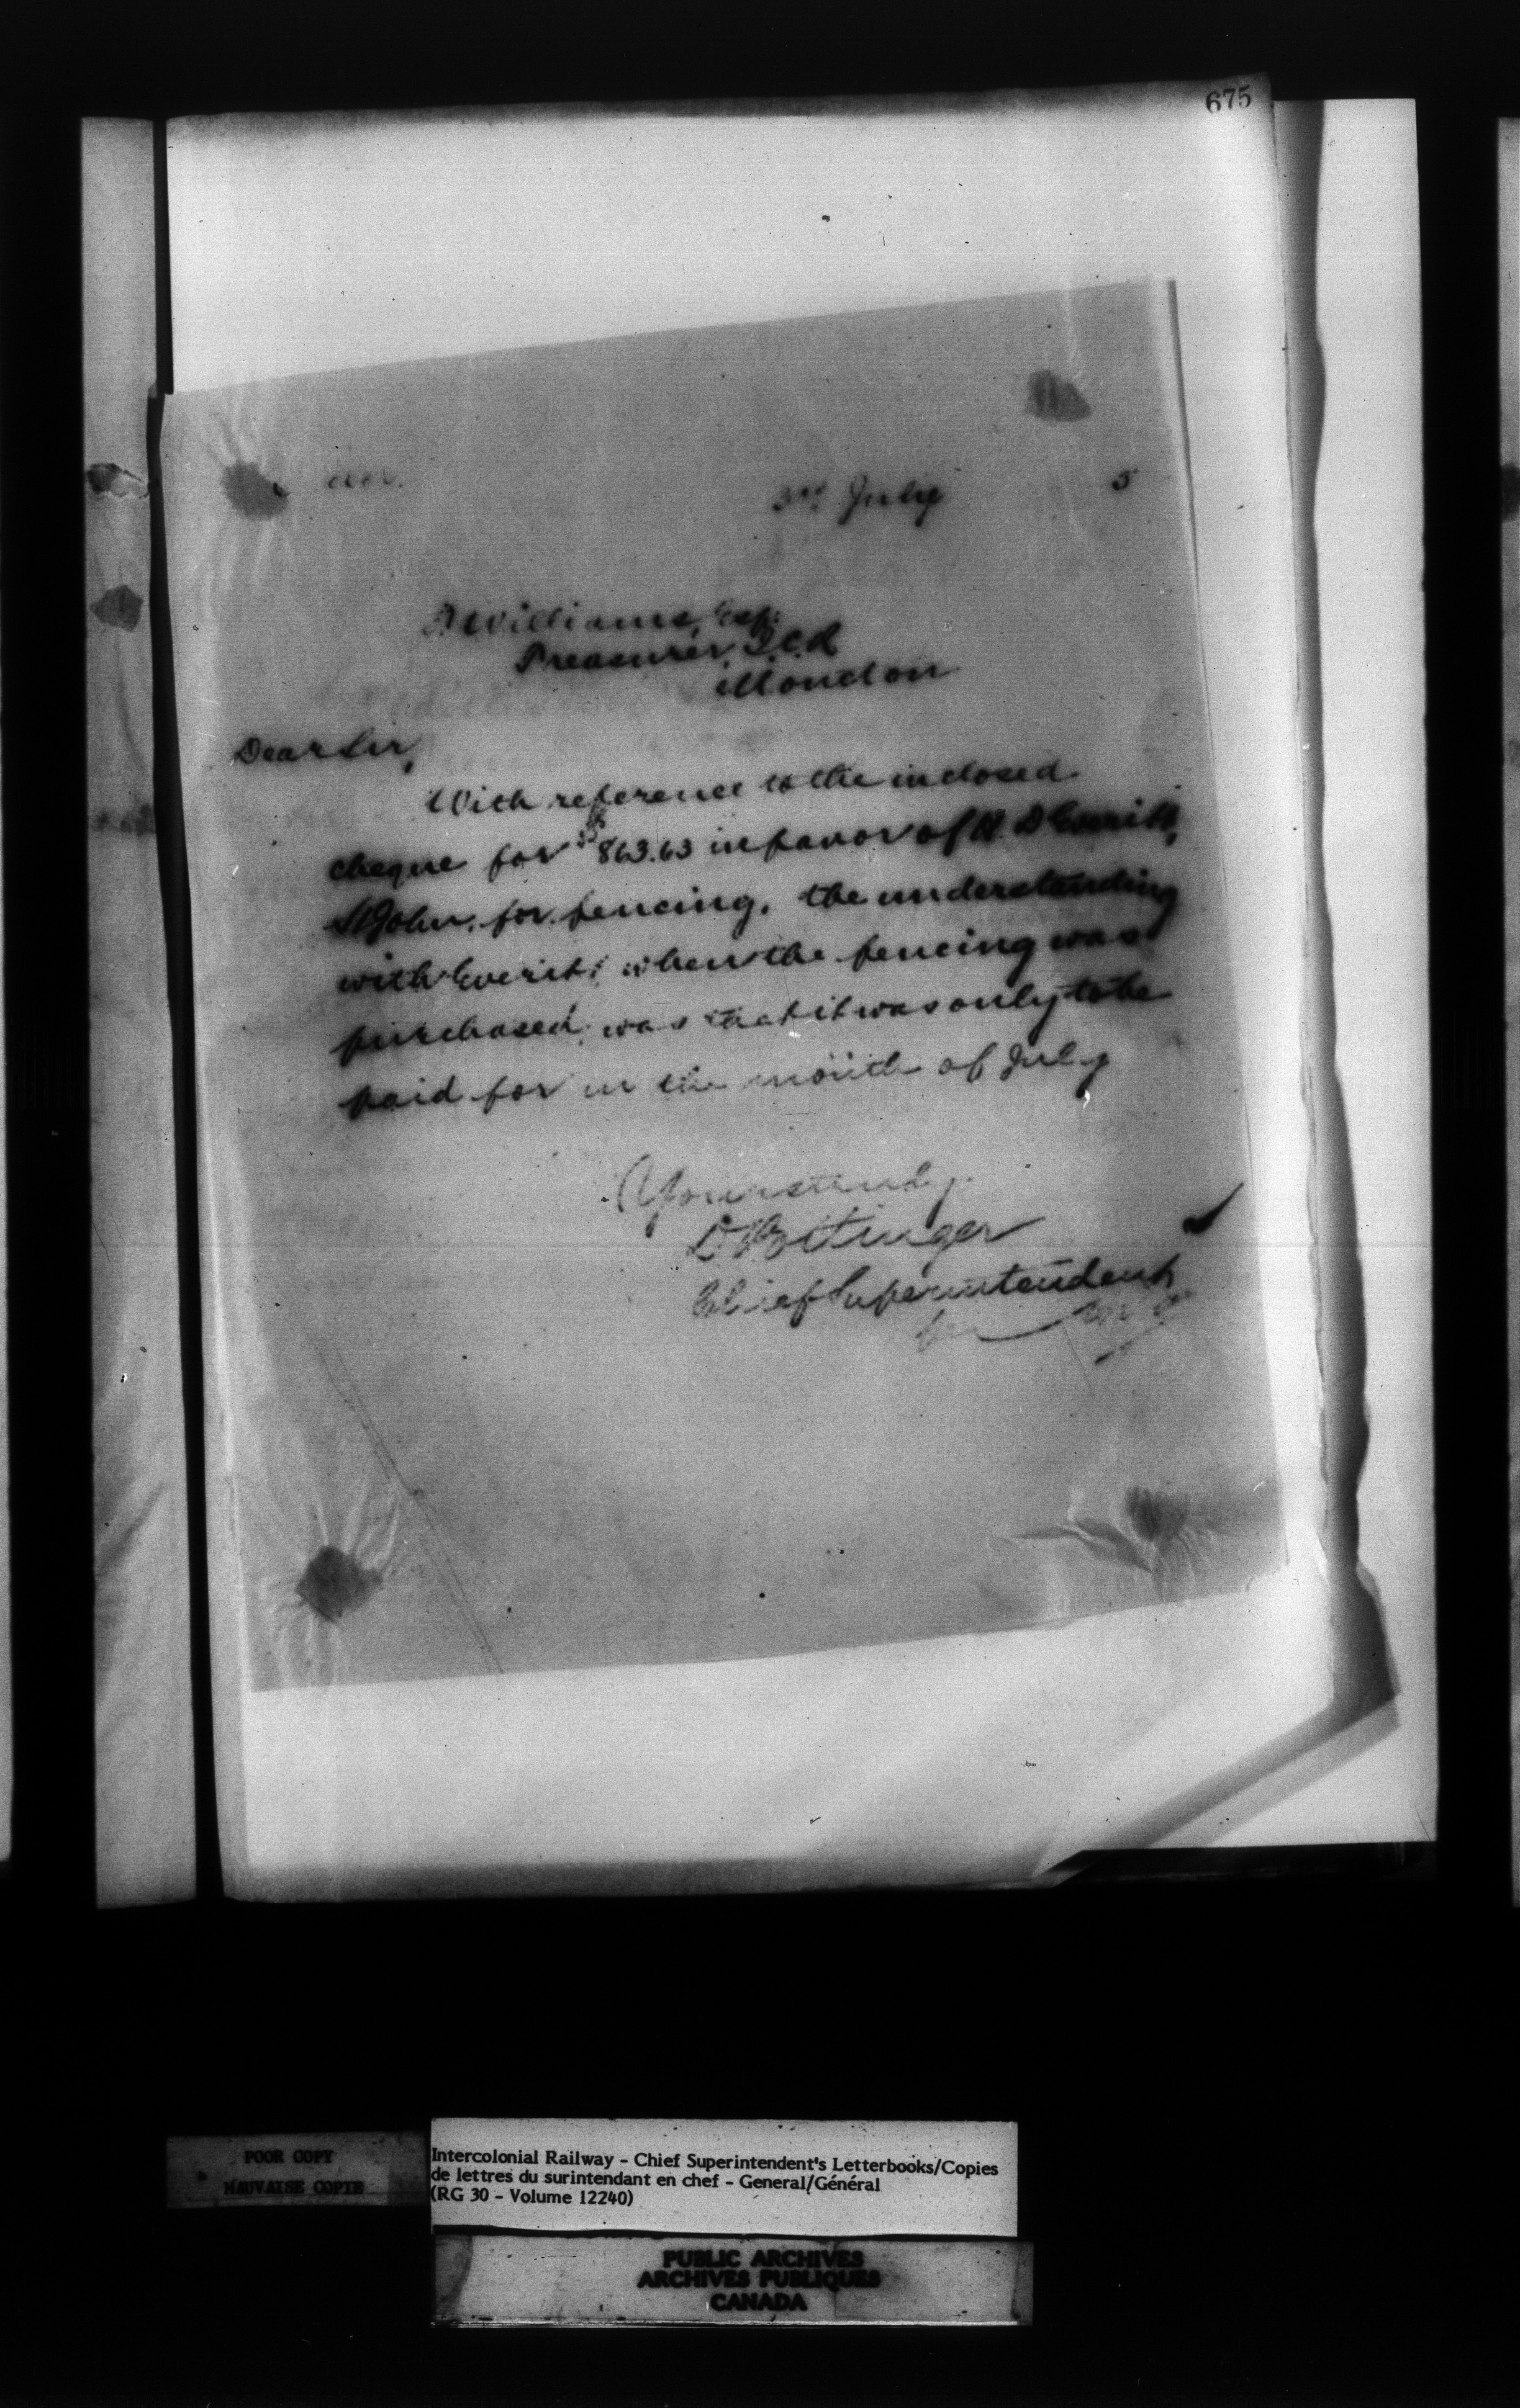 675
3rd July 5
Williams, Esq:
Treasurer, I.C.R
Moncton
Dear Sir,
With reference to the inclosed
cheque for $863.63 in favor of H. D Everitt,
St John, for fencing, the understanding
with Everitt when the fencing was
purchased was that it was only to be
paid for in the month of July
Yours truly.
D Pottinger
Chief Superintendent
per
POOR COPY
MAUVAISE COPIE
Intercolonial Railway - Chief Superintendent's Letterbooks/Copies
de lettres du surintendant en chef - General/Général
(RG 30 - Volume 12240)
PUBLIC ARCHIVES
ARCHIVES PUBLIQUES
CANADA